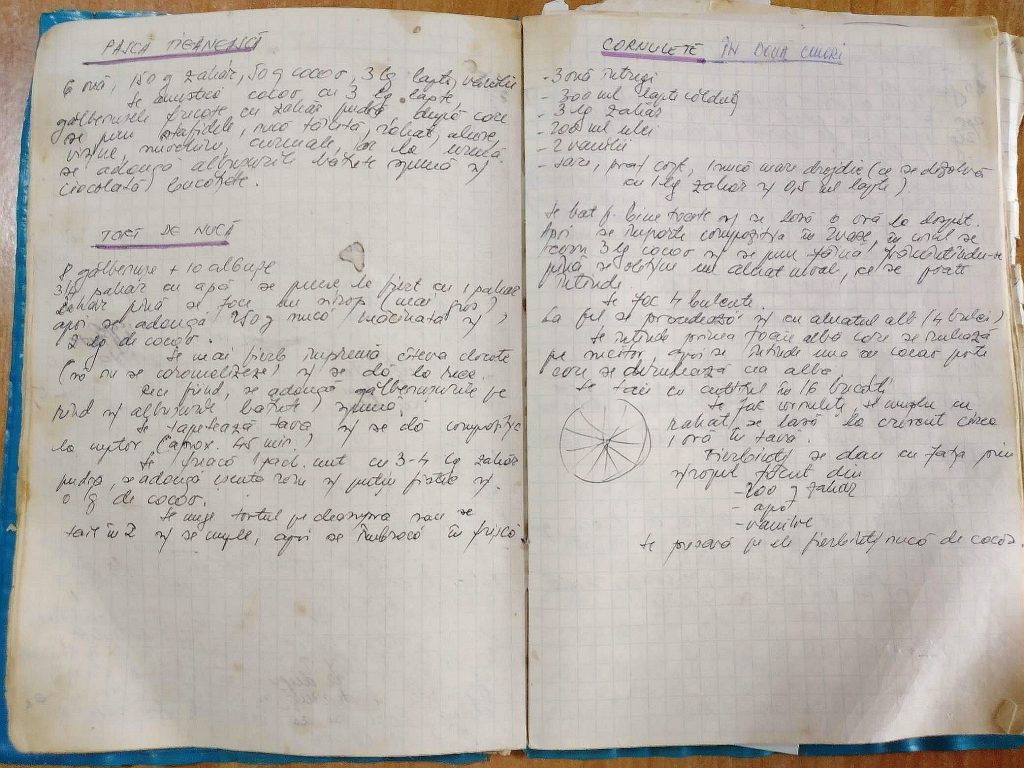 PASCA ȚIGĂNEASCĂ
6 ouă, 150 g zahăr, 50 g cacao, 3 lg lapte, vanilie
Se amestecă cacao cu 3 lg lapte,
gălbenușele frecate cu zahăr pudră după care
se pun stafidele, nucă tăiată, rahat, alune,
vișine, curmale, iar la urmă
se adaugă albușurile bătute spumă și
ciocolată bucățele.
TORT DE NUCĂ
8 gălbenușe + 10 albușe
3/4 pahar cu apă se pune la fiert cu 1 pahar
zahăr până se face un sirop (mai gros)
apoi se adaugă 250 g nucă măcinată și
2 lg de cacao.
Se mai fierb împreună câteva clocote
(să nu se caramelizeze) și se dă la rece.
Rece fiind, se adaugă gălbenușurile pe
rând și albușurile bătute spumă.
Se tapetează tava și se dă compoziția
la cuptor (aprox. 45 min.)
Se freacă 1 pach. unt cu 3-4 lg zahăr
pudră, se adaugă esență rom și puțin și
o lg de cacao.
Se unge tortul pe deasupra sau se
taie în 2 și se umple, apoi se îmbracă în frișcă
CORNULEȚE ÎN DOUĂ CULORI
- 3 ouă întregi
- 300 ml lapte călduț
- 3 lg zahăr
- 200 ml ulei
- 2 vanilii
- sare, praf copt, 1 nucă mare drojdie (ce se dizolvă
cu 1 lg zahăr și 0,5 ml lapte)
Se bat f. bine toate și se lasă o oră la dospit.
Apoi se împarte compoziția în 2 vase, în unul se
3 lg cacao și se pune făina frământându-se
până se obține un aluat moale, ce se poate
întinde.
Se fac 4 bulcute.
La fel se procedează și cu aluatul alb (4 bulci)
Se întinde prima foaie albă care se
pe apoi se întinde una cu cacao peste
care se cea albă.
Se taie cu cuțitul în 16 bucăți
Se fac cornulețe, se umplu cu
rahat, se lasă la crescut circa
1 oră în tavă.
Fierbinți se dau cu fața prin
siropul făcut din
- 200 g zahăr
- apă
- vanilie
Se presară pe ele fierbinți nucă de cocos.